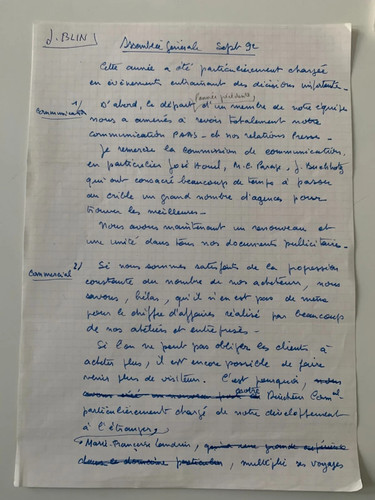 J. BLIN
Assemblée Générale Sept 92
Cette année a été particulièrement chargée
en évènements entrainant des décisions importantes.
1/ Communication
l'année précédente
D'abord, le départ, d'un membre de notre équipe
nous a amenés à revoir totalement notre
communication PAAS - et nos relations Presse -
Je remercie la commission de communication,
en particulier José
qui ont consacré beaucoup de temps à passer
au crible un grand nombre d'agences pour
trouver les meilleures -
Nous avons maintenant un renouveau et
une unité dans tous nos documents publicitaires -
2/ Commercial
Si nous sommes satisfaits de la progression
constante du nombre de nos acheteurs, nous
savons, hélas, qu'il n'en est pas de même
pour le chiffre d'affaires réalisé par beaucoup
de nos ateliers et entreprises -
Si l'on ne peut pas obliger les clients à
acheter plus, il est encore possible de faire
venir plus de visiteurs. C'est pourquoi, nous
avons créé un nouveau poste Directeur Com.al
particulièrement chargé de notre développement
à l'étranger,
Marie-Françoise, qui a une grande expérience
dans ce domaine particulier, multiplie ses voyages